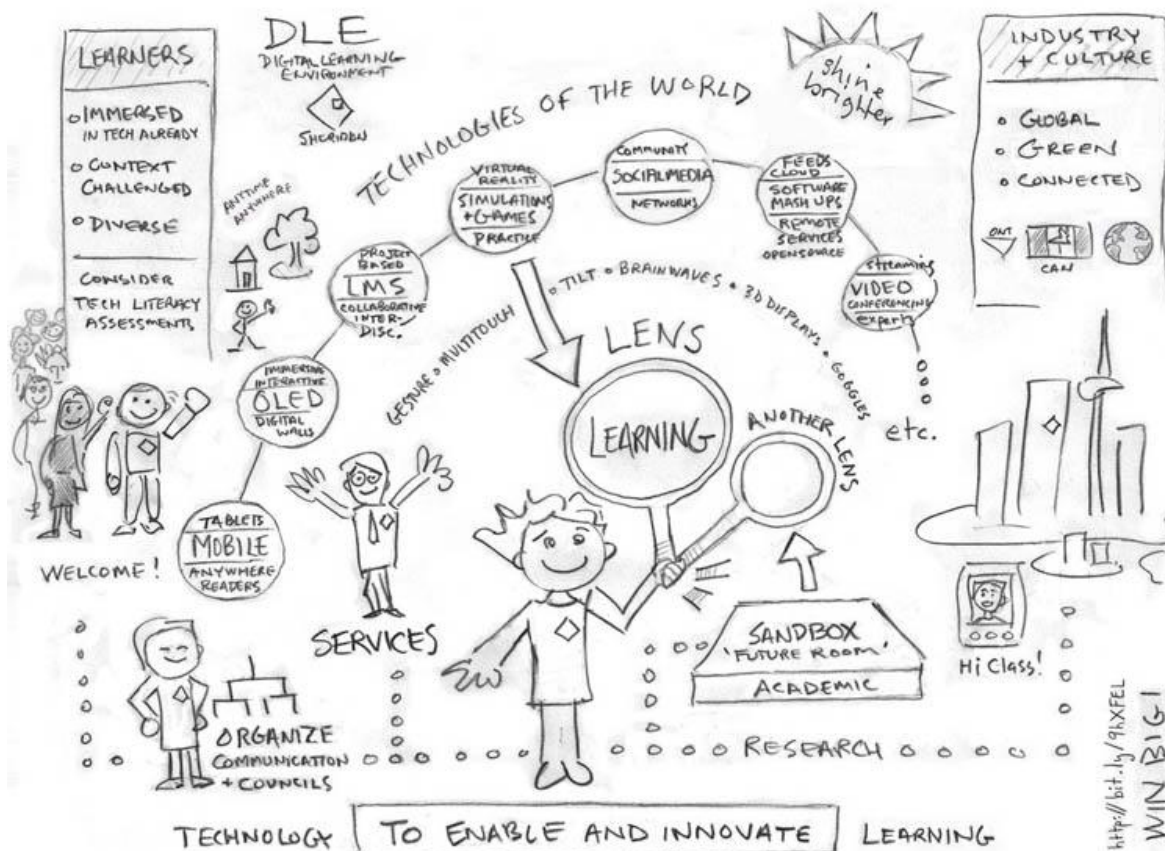 LEARNERS
IMMERSED
IN TECH ALREADY
CONTEXT
CHALLENGED
DIVERSE
CONSIDER
TECH LITERACY
ASSESSMENTS
DLE
DIGITAL LEARNING
ENVIRONMENT
SHERIDAN
ANYTIME
ANYWHERE
TECHNOLOGIES OF THE WORLD
shine
brighter
INDUSTRY
+ CULTURE
GLOBAL
GREEN
CONNECTED
ONT
CAN
TABLETS
MOBILE
ANYWHERE
READERS
IMMERSIVE
INTERACTIVE
OLED
DIGITAL
WALLS
PROJECT
BASED
LMS
COLLABORATIVE
INTER-
DISC.
VIRTUAL
REALITY
SIMULATIONS
+ GAMES
PRACTICE
COMMUNITY
SOCIAL MEDIA
NETWORKS
FEEDS
CLOUD
SOFTWARE
MASH UPS
REMOTE
SERVICES
OPENSOURCE
streaming
VIDEO
CONFERENCING
experts
etc.
GESTURE • MULTITOUCH • TILT • BRAINWAVES • 3D DISPLAYS • GOGGLES
LENS
LEARNING
ANOTHER LENS
WELCOME!
SERVICES
ORGANIZE
COMMUNICATION
+ COUNCILS
SANDBOX
'FUTURE ROOM'
ACADEMIC
RESEARCH
Hi Class!
TECHNOLOGY TO ENABLE AND INNOVATE LEARNING
https://bit.ly/9hXFEL
WIN BIG!